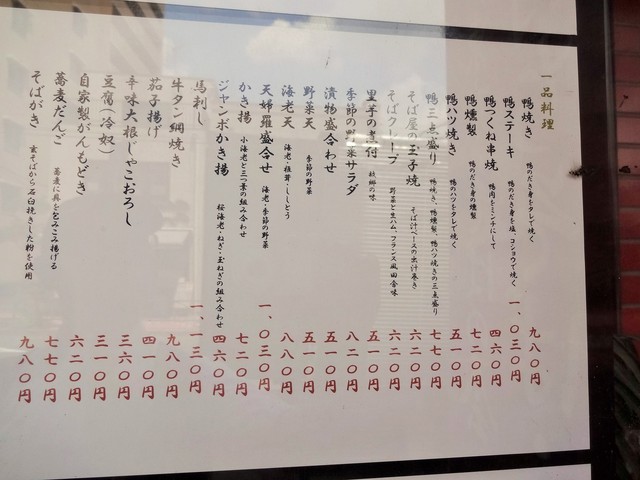 一品料理
鴨焼き 鴨のだき身をタレで焼く 九八〇円
鴨ステーキ 鴨のだき身を塩、コショウで焼く 一、〇三〇円
鴨つくね串焼 鴨肉をミンチにして 四六〇円
鴨燻製 鴨のだき身の燻製 七二〇円
鴨ハツ焼き 鴨のハツをタレで焼く 五一〇円
鴨三点盛り 鴨焼き、鴨燻製、鴨ハツ焼きの三点盛り 七七〇円
そば屋の玉子焼 そば汁ベースの出汁巻き 六二〇円
そばクレープ 野菜と生ハム、フランス風田舎味 六二〇円
里芋の煮付 故郷の味 五一〇円
季節の野菜サラダ 八二〇円
漬物盛合わせ 五一〇円
野菜天 季節の野菜 五一〇円
海老天 海老・椎茸・ししとう 八八〇円
天婦羅盛合せ 海老・季節の野菜 一、〇三〇円
かき揚 小海老と三つ葉の組み合わせ 七二〇円
ジャンボかき揚 桜海老・ねぎ・玉ねぎの組み合わせ 四六〇円
馬刺し 一、一三〇円
牛タン網焼き 九八〇円
茄子揚げ 四一〇円
辛味大根じゃこおろし 三六〇円
豆腐(冷奴) 三一〇円
自家製がんもどき 六二〇円
蕎麦だんご 蕎麦に具を包みこみ揚げる 七二〇円
そばがき 玄そばから石臼挽きした粉を使用 九八〇円